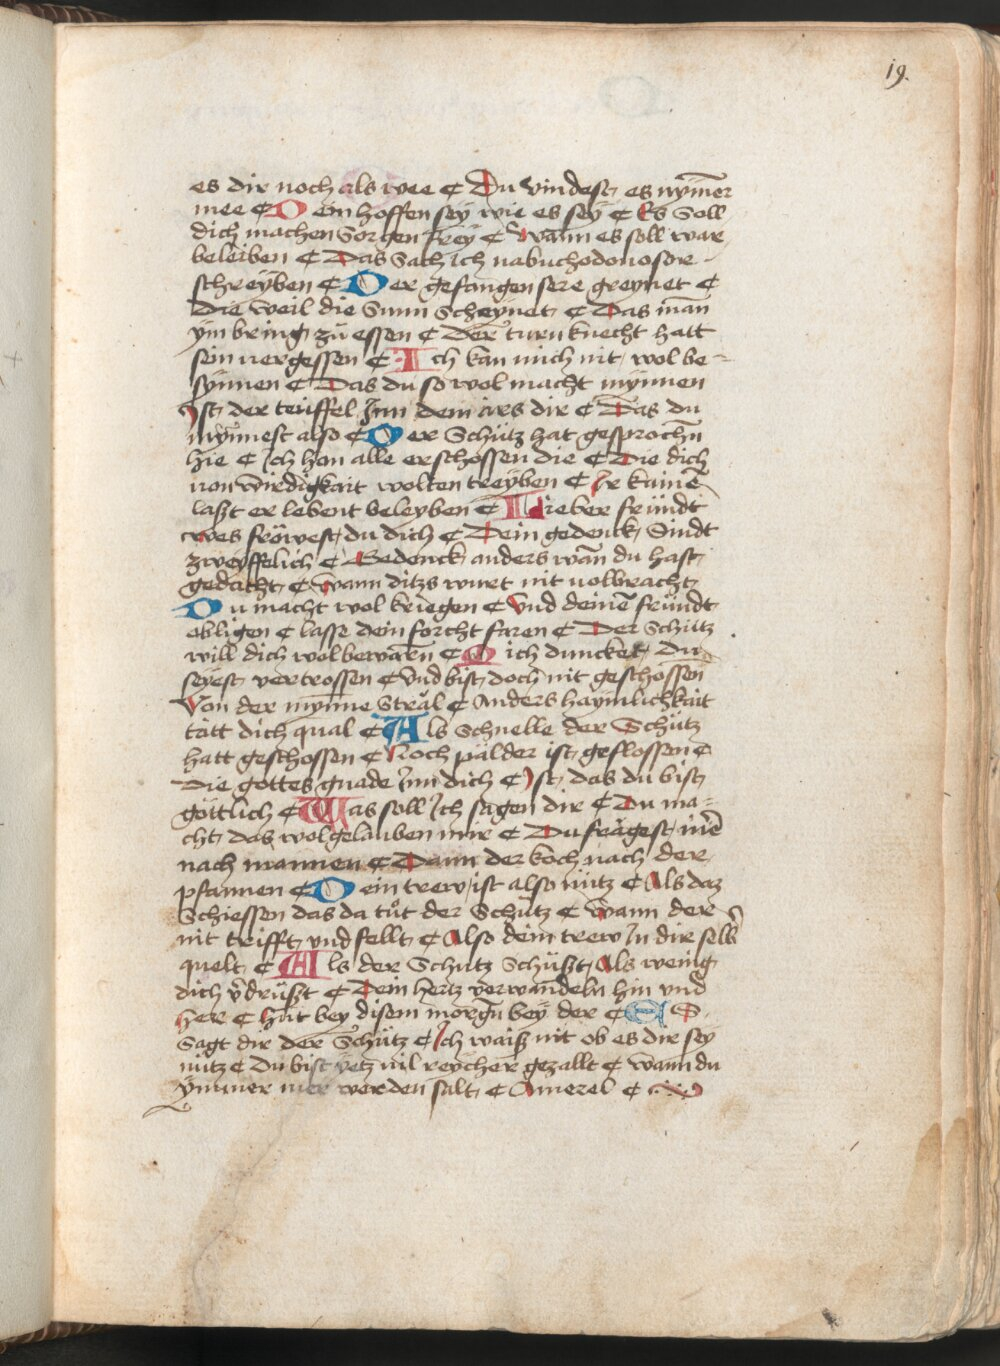 19.
es dir noch als wee ¢ Du vindest es nym̄er
mee ¢ Dein hoffen sey wie es sey ¢ Es Soll
dich machen Sorgen frey ¢ Wann es soll war
beleiben ¢ Das Sach ich nabuchodonosor
schreyben ¢ Der gefangen sere greynet ¢
Die weil die Sunn Scheynet ¢ Das man
ym bring zu essen ¢ Der turn knecht hatt
sein vergessen ¢ Ich kan mich nit wol be=
synnen ¢ Das du so wol macht mynnen
Ist der teüffel Inn dem ars dir ¢ Das du
mynnest also ¢ Der Schütz hat gesprochn̄
hie ¢ Ich hon alle erschossen die ¢ Die dich
von wirdigkait wolten treyben ¢ Ir kainē
laßt er lebent beleyben ¢ Lieber fründt
wes fröwest du dich ¢ Dein gedenck Sindt
zweyffelich ¢ Gedenck anders wān du hast
gedacht ¢ Wann ditzs wuret nit volbracht
Du macht wol kriegen ¢ Vnd deinē fründt
obligen ¢ lasse dein forcht faren ¢ Der Schütz
will dich wol bewarn ¢ Dich duncket Du
seyest vertrossen ¢ Vnd bist doch nit geschossen
Von der mynne Stral ¢ Anders haymlichkait
tätt dich qual ¢ Als Schnelle der Schütz
hatt geschossen ¢ Noch pälder ist geflossen ¢
Die gottes gnade Inn dich ¢ Ist das du bist
göttlich ¢ Was soll Ich sagen dir ¢ Du ma=
cht das wol gelauben mir ¢ Du frägest mē
nach mannen ¢ Dann der koch nach der
pfannen ¢ Dein trew ist also nütz ¢ Als daz
Schiessen das da tůt der Schütz ¢ Wann der
nit trifft vnd fellt ¢ Also dein trew In dir selb
quelt ¢ Als der Schütz Schüßt Als wenig
dich v̄drüßt ¢ Dein hertz verwandeln hin vnd
her ¢ hüt bey disem morgn̄ bey der ¢ ES
Sagt dir der Schütz ¢ Ich waiß nit ob es dir sey
nütz ¢ Du bist yetz vil reycher gezallt ¢ Wann du
ymmer mer werden salt ¢ Amerel ¢